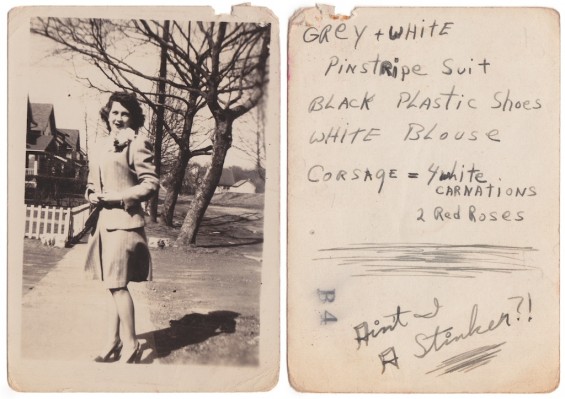 GREY + WHITE
PINSTRIPE SUIT
BLACK PLASTIC SHOES
WHITE BLOUSE
CORSAGE = 4 white
CARNATIONS
2 Red ROSES
B4
Aint I
A Stinker?!